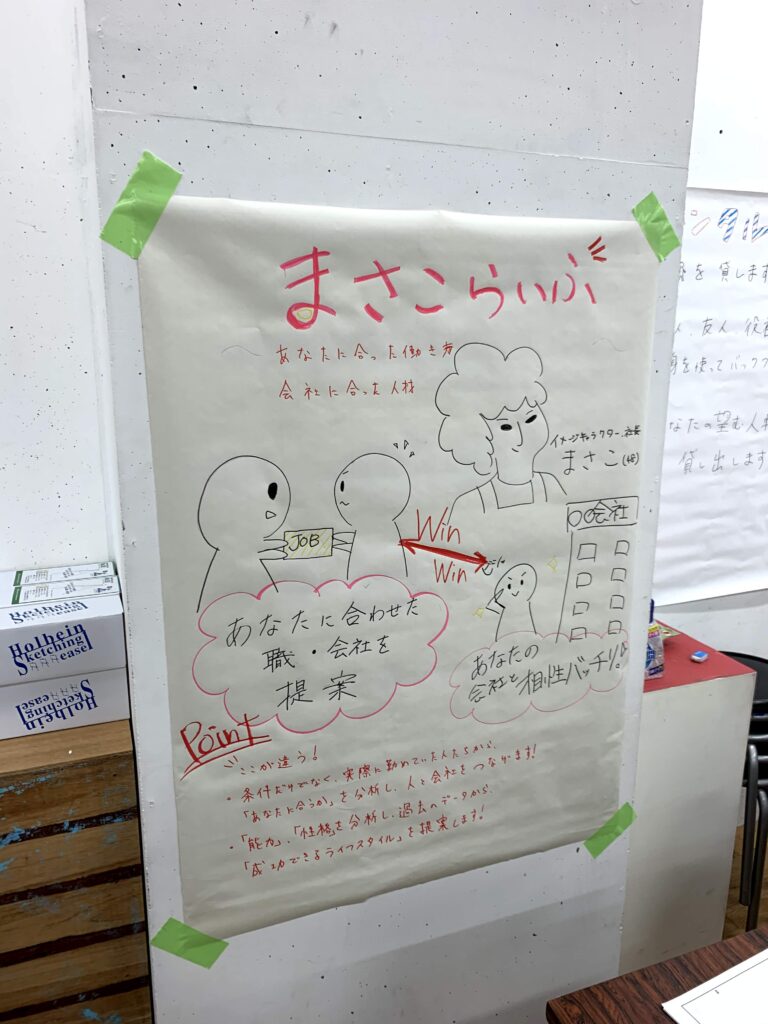 まさこらいふ゛
あなたに合った働き方
会社に合った人材
イメージキャラクター、社長
まさこ(48)
〇〇会社
JOB
Win
Win
あなたに合わせた
職・会社を
提案
あなたの
会社と相性バッチリ!
Point
ここが違う!
・条件だけでなく、実際に勤めていた人たちから、
「あなたに合うか」を分析し、人と会社をつなげます!
・「能力」、「性格」を分析し、過去のデータから、
「成功できるライフスタイル」を提案します!
ンタル
を貸します
人、友人、役
を使ってバック
なたの望む人材
貸し出します
Holbein
Sketching
easel
Holbein
Sketching
easel